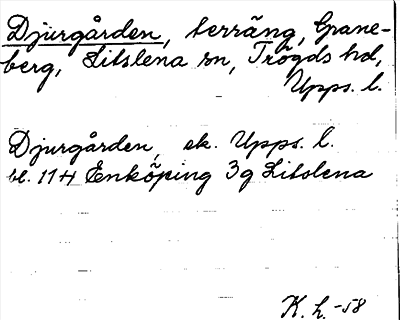 Djurgården, terräng, Grane-
berg, Litslena sn, Trögds hd,
Upps. l.
Djurgården, ek. Upps. l.
bl. 114 Enköping 3g Litslena
K. h. -58